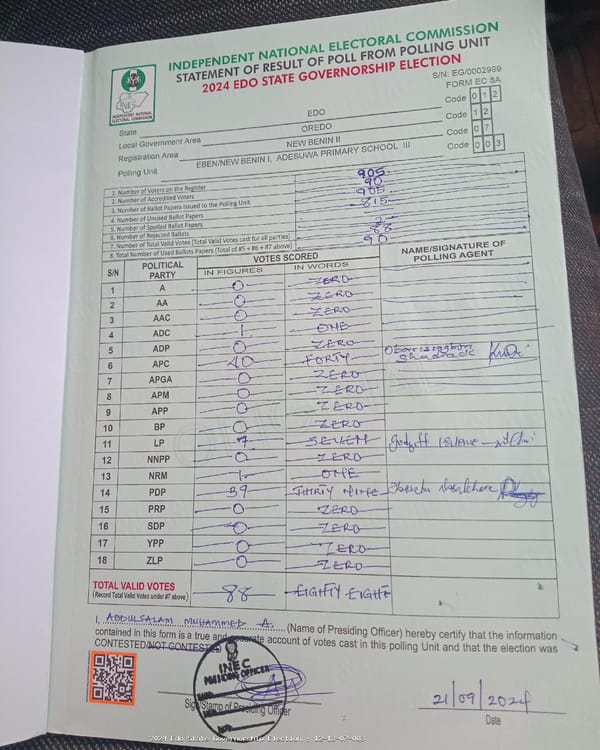 INDEPENDENT NATIONAL ELECTORAL COMMISSION
STATEMENT OF RESULT OF POLL FROM POLLING UNIT
2024 EDO STATE GOVERNORSHIP ELECTION
S/N: EG/0002999
FORM EC 8A
INEC
INDEPENDENT NATIONAL ELECTORAL COMMISSION
State EDO Code 012
Local Government Area OREDO Code 12
Registration Area NEW BENIN II Code 07
Polling Unit EBEN/NEW BENIN I, ADESUWA PRIMARY SCHOOL III Code 003
1. Number of Voters on the Register 905
2. Number of Accredited Voters 90
3. Number of Ballot Papers Issued to the Polling Unit 905
4. Number of Unused Ballot Papers 815
5. Number of Spoiled Ballot Papers
6. Number of Rejected Ballots
7. Number of Total Valid Votes (Total Valid Votes cast for all parties) 88
8. Total Number of Used Ballots Papers (Total of #5 + #6 + #7 above) 90
S/N POLITICAL PARTY VOTES SCORED NAME/SIGNATURE OF POLLING AGENT
IN FIGURES IN WORDS
1 A 0 ZERO
2 AA 0 ZERO
3 AAC 0 ZERO
4 ADC 1 ONE
5 ADP 0 ZERO
6 APC 40 FORTY
7 APGA 0 ZERO
8 APM 0 ZERO
9 APP 0 ZERO
10 BP 0 ZERO
11 LP 7 SEVEN
12 NNPP 0 ZERO
13 NRM 1 ONE
14 PDP 39 THIRTY NINE
15 PRP 0 ZERO
16 SDP 0 ZERO
17 YPP 0 ZERO
18 ZLP 0 ZERO
TOTAL VALID VOTES 88 EIGHTY EIGHT
(Record Total Valid Votes under #7 above)
I, ABDULSALAM MUHAMMED A. (Name of Presiding Officer) hereby certify that the information
contained in this form is a true and accurate account of votes cast in this polling Unit and that the election was
CONTESTED/NOT CONTESTED
INEC
PRESIDING OFFICER
Sign/Stamp of Presiding Officer
21/09/2024
Date
2024 Edo State Governorship Election : 12-12-07-003